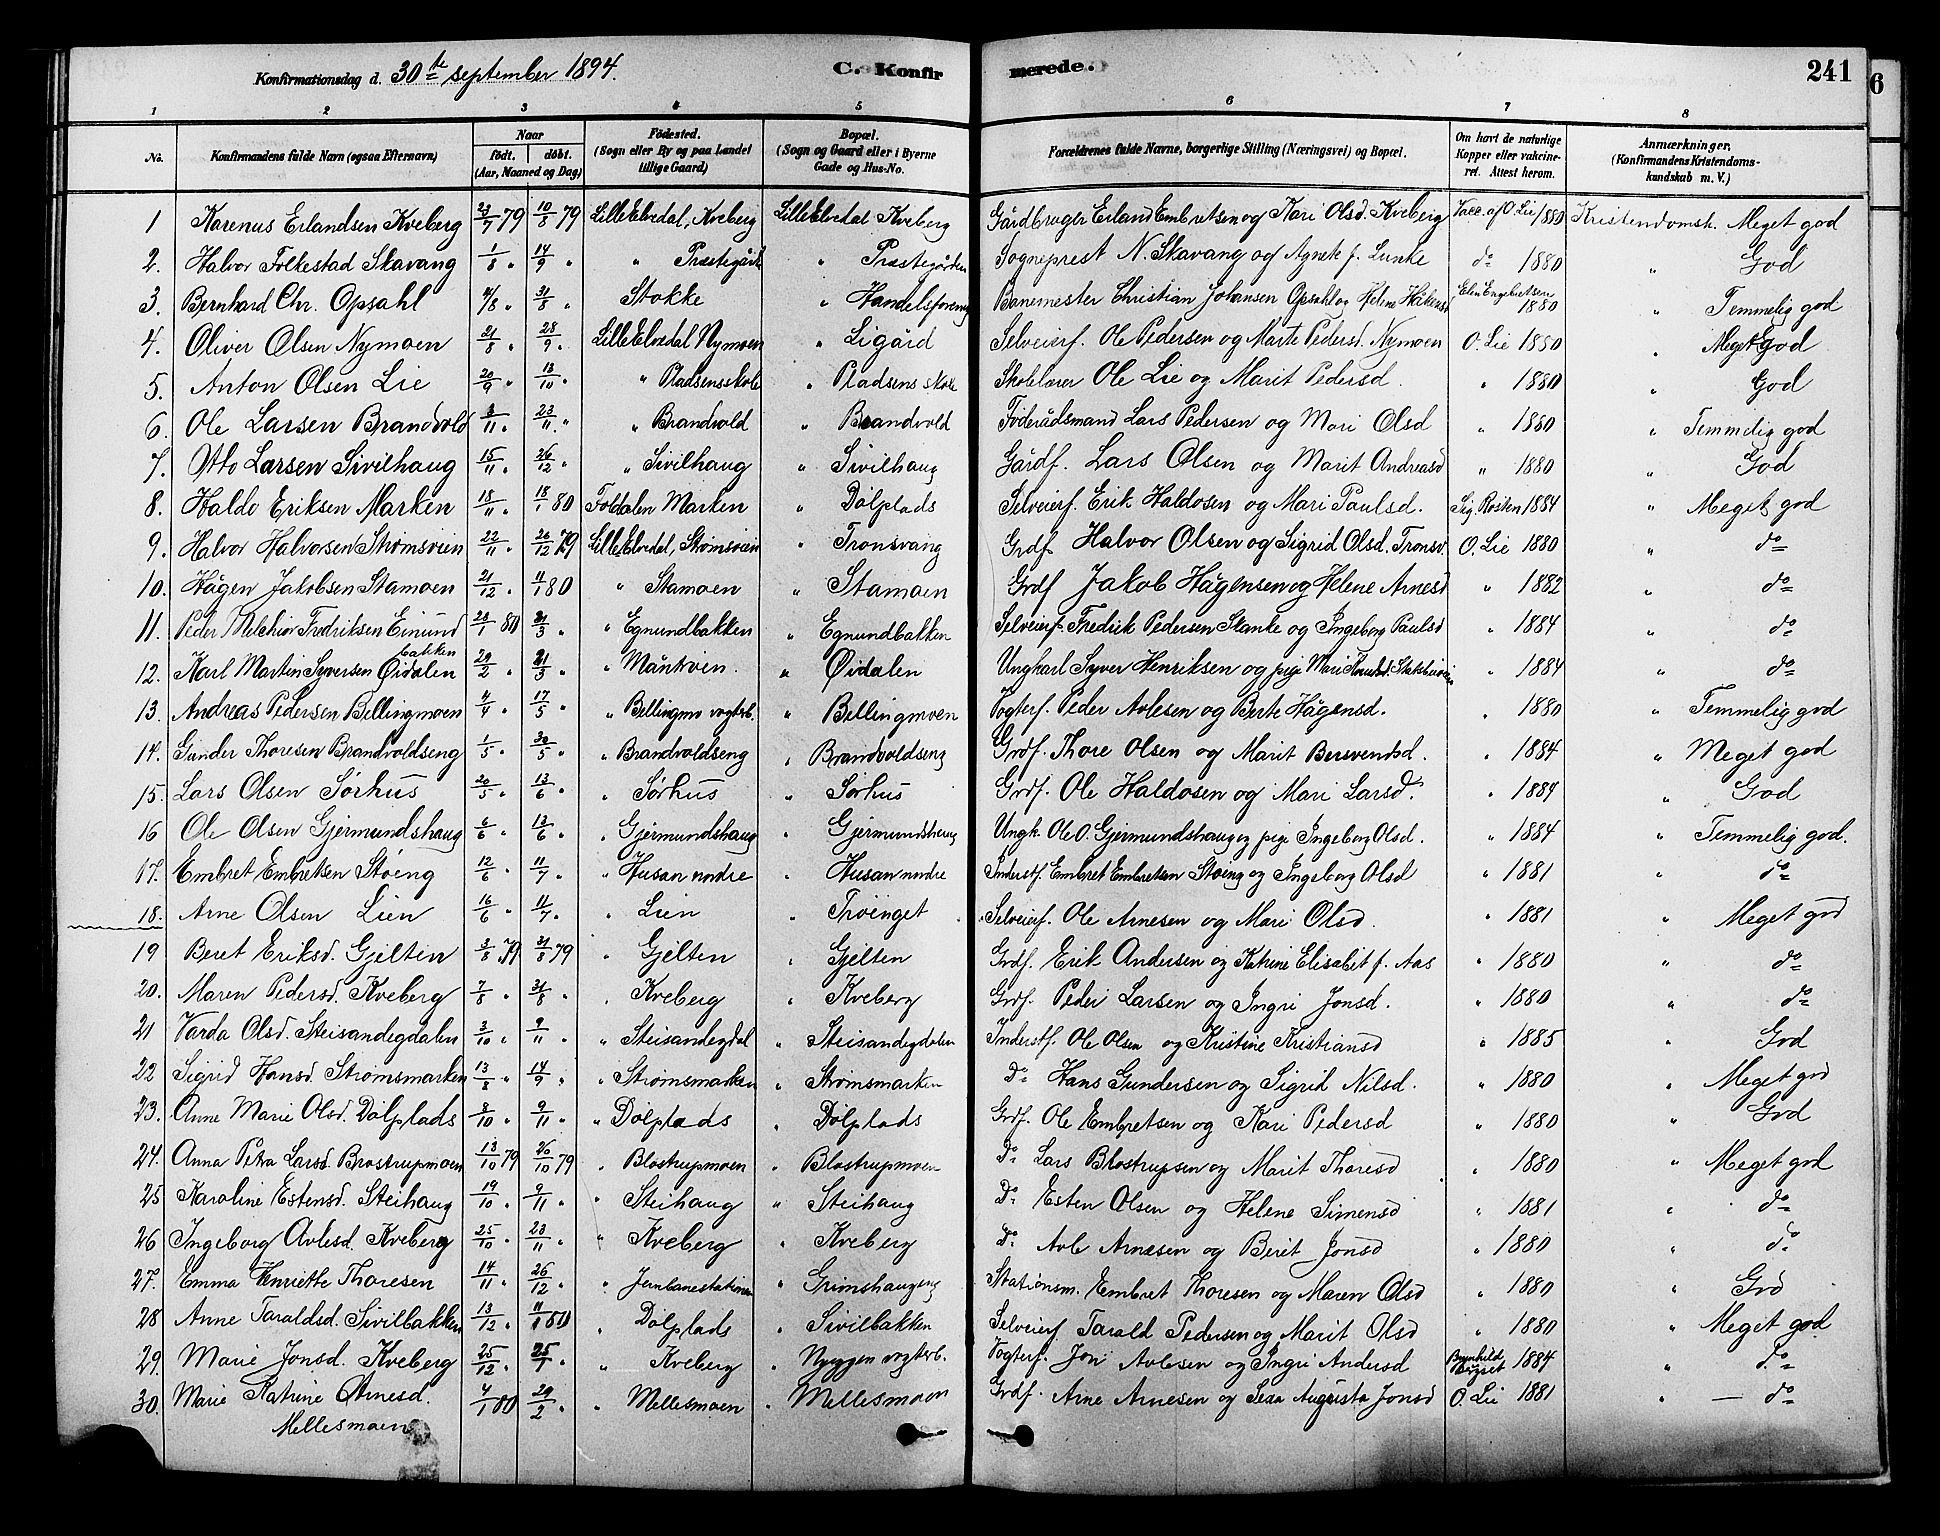 Konfirmationsdag d. 30te september 1894.
C. Konfirmerede.
241
6
1 2 3 4 5 6 7 8
No.
Konfirmandens fulde Navn (ogsaa Efternavn).
Naar
født. døbt.
(Aar, Maaned og Dag)
Fødested.
(Sogn eller By og paa Landet
tillige Gaard)
Bopæl.
(Sogn og Gaard eller i Byerne
Gade og Hus-No.
Forældrenes fulde Navne, borgerlige Stilling (Næringsvei) og Bopæl.
Om havt de naturlige
Kopper eller vakcine-
ret. Attest herom.
Anmærkninger.
(Konfirmandens Kristendoms-
kundskab m. V.)
1 Karenus Erlandsen Kveberg 23/7 79 10/8 79 Lille Elvedal, Kveberg Lille Elvedal Kveberg Gårdbruger Erland Embretsen og Kari Olsd. Kveberg Vacc. af O. Lie 1880 Kristendomsk. Meget god
2. Halvor Folkestad Skavang 1/8 " 14/9 " " Præstegården " Præstegården Sogneprest N. Skavang og Agnete f. Lunke do 1880 " God
3. Bernhard Chr. Opsahl 11/8 " 31/8 " Stokke " Handelsforening Banemester Christian Johansen Opsahl og Helene Håkensd Elen Engebretsen 1880 " Temmelig god
4. Oliver Olsen Nymoen 21/8 " 28/9 " Lille Elvedal Nymoen " Ligård Selveierf. Ole Pedersen og Marte Pedersd. Nymoen O. Lie 1880 " Meget god
5. Anton Olsen Lie 20/9 " 13/10 " " Pladsensskole " Pladsens skole Skolelærer Ole Lie og Marit Pedersd. " 1880 " God
6. Ole Larsen Brandvold 3/11 " 23/11 " " Brandvold " Brandvold Føderådsmand Lars Pedersen og Mari Olsd " 1880 " Temmelig god
7. Otto Larsen Sivilhaug 15/11 " 26/12 " " Sivilhaug " Sivilhaug Gårdf. Lars Olsen og Marit Andreasd " 1880 " God
8. Haldo Eriksen Marken 18/11 " 18/1 80 Foldalen Marken " Dølplads Selveierf. Erik Haldosen og Mari Paulsd. Sig. Rosten 1884 " Meget god
9. Halvor Halvorsen Strømsveien 22/11 " 26/12 79 Lille Elvedal, Strømsveien " Tronsvang Grdf Halvor Olsen og Sigrid Olsd. Tronsv. O. Lie 1880 " do
10. Hågen Jakobsen Stamoen 21/12 " 11/1 80 " Stamoen " Stamoen Grdf Jakob Hågensen og Helene Arnesd " 1882 " do
11. Peder Melchior Fredriksen Einund 23/1 80 21/3 " " Egnundbakken " Egnundbakken Selveierf. Fredrik Pedersen Stanke og Ingeborg Paulsd " 1884 " do
bakken
12. Karl Martin Syversen Øidalen 29/2 " 21/3 " " Månkvien. " Øidalen Ungkarl Syver Henriksen og pige Mari " 1884 " do
13. Andreas Pedersen Bellingmoen 4/4 " 17/5 " " Bellingmo vogterb. " Bellingmoen Vogterf. Peder Avlesen og Berte Hågensd. " 1880 " Temmelig god
14. Gunder Thoresen Brandvoldseng 1/5 " 30/5 " " Brandvoldseng " Brandvoldseng Grdf. Thore Olsen og Marit Bersvendsd. " 1884 " Meget god
15. Lars Olsen Sørhus 20/5 " 13/6 " " Sørhus " Sørhus Grdf. Ole Haldosen og Mari Larsd. " 1884 " God
16 Ole Olsen Gjermundshaug 6/6 " 13/6 " " Gjermundshaug " Gjermundshaug Ungk. Ole O. Gjermundshaug og pige Ingeborg Olsd. " 1884 " Temmelig god.
17. Embret Embretsen Støeng 12/6 " 11/7 " " Husan nodre " Husan nordre Inderstf. Embret Embretsen Støeng og Ingeborg Olsd " 1881 " do
18. Arne Olsen Lien 16/6 " 11/7 " " Lien " Trøenget Selveierf. Ole Arnesen og Mari Olsd. " 1881 " Meget god
19 Beret Eriksd. Gjelten 3/8 79 31/8 79 " Gjelten " Gjelten Grdf. Erik Andersen og Katrine Elisabet f. Aas " 1880 " do
20. Maren Pedersd. Kveberg 7/8 " 31/8 " " Kveberg " Kveberg Grdf. Peder Larsen og Ingri Jonsd. " 1880 " do
21 Varda Olsd. Steisandegdalen 3/10 " 9/11 " " Steisandegdal " Steisandegdalen Inderstf. Ole Olsen og Kristine Kristiansd " 1885 " God
22 Sigrid Hansd. Strømsmarken 13/8 " 14/9 " " Strømsmarken " Strømsmarken Do Hans Gundersen og Sigrid Nilsd. " 1880 " Meget god
23. Anne Marie Olsd. Dølplads 8/10 " 9/11 " " Dølplads " Dølplads Grdf. Ole Embretsen og Kari Pedersd " 1880 " God
24. Anna Petra Larsd. Brostrupmoen 13/10 79 26/10 79 " Blostrupmoen " Blostrupmoen Do Lars Blostrupsen og Marit Thoresd " 1880 " Meget god
25 Karoline Estensd. Steihaug 19/10 " 9/11 " " Steihaug " Steihaug Do Esten Olsen og Helene Simensd " 1881 " do
26 Ingeborg Avlesd. Kveberg 25/10 " 23/11 " " Kveberg " Kveberg Do Avle Arnesen og Berit Jonsd " 1880 " do
27. Emma Henriette Thoresen 14/11 " 26/12 " " Jernbanestationen " Grimshaugeng Stationsm. Embret Thoresen og Maren Olsd " 1880 " God
28 Anne Taraldsd. Sivilbakken 13/12 " 11/1 80 " Dølplads " Sivilbakken Selveierf Tarald Pedersen og Marit Olsd " 1880 " Meget god
29. Marie Jonsd. Kveberg 25/12 " 25/1 " " Kveberg " Nyggen vogterb. Vogterf. Jon Avlesen og Ingri Andersd Brynhild 1884 " do
30. Marie Katrine Arnesd. 4/1 80 29/2 " " Mellesmoen " Mellesmoen Grdf. Arne Arnesen og Augusta Jonsd O. Lie 1881 " — do
Mellesmoen